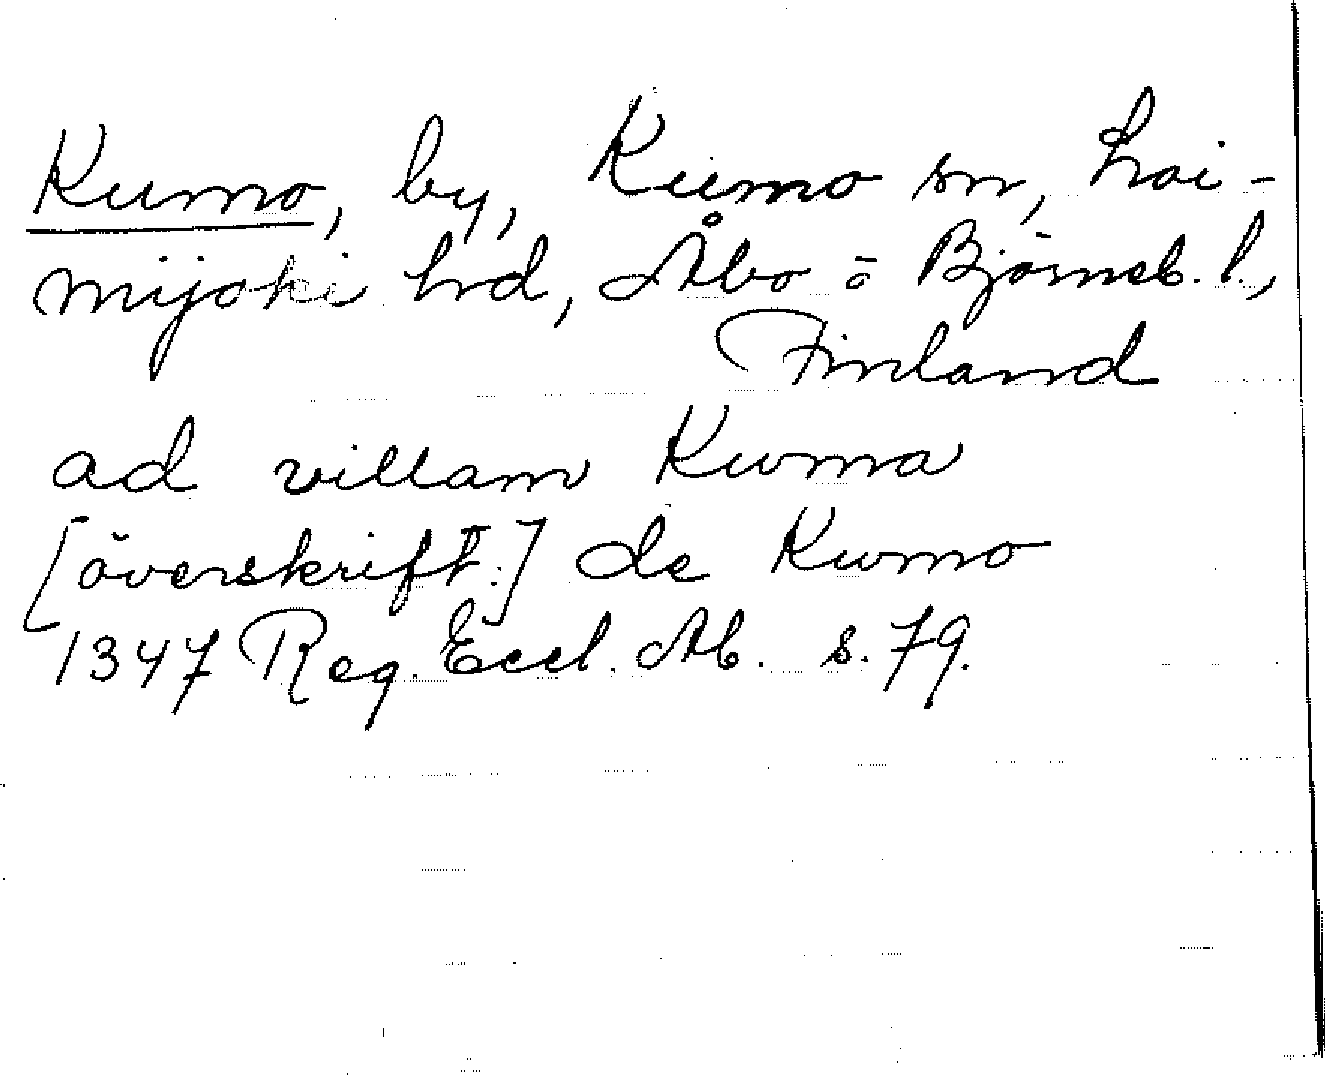 Kumo, by, Kumo sn, Loi-
mijoki hd, Åbo o Björneb. l.,
Finland
ad villam Kwma
[överskrift:] de Kwmo
1347 Reg. Eccl. Ab. s. 79.